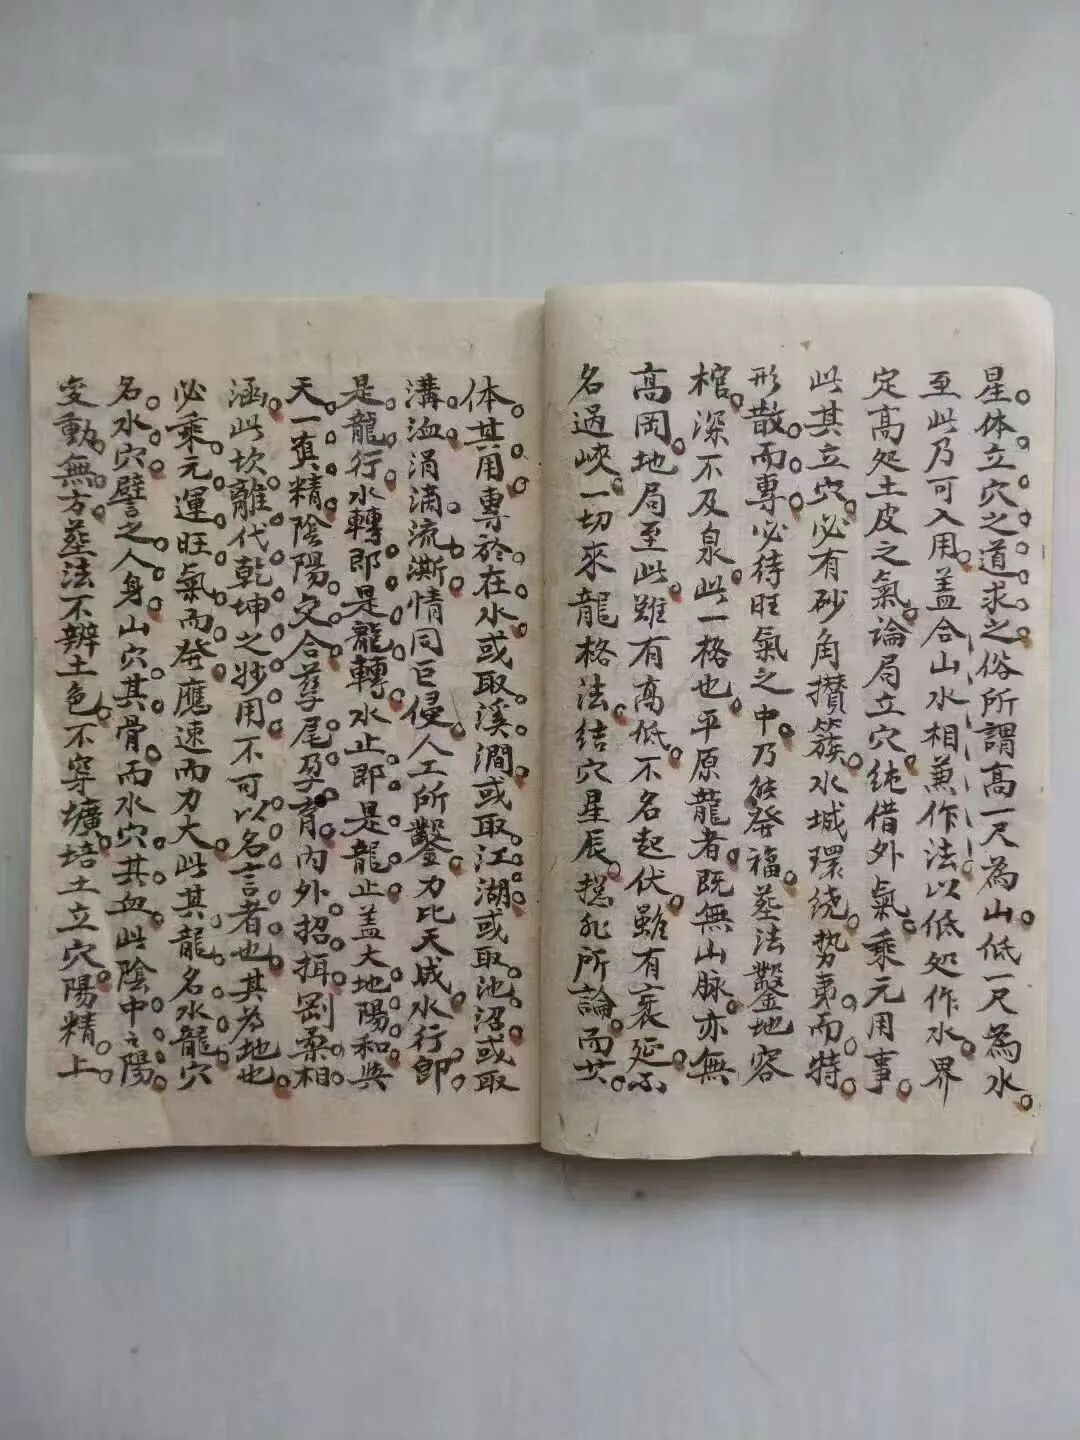 星体立穴之道求之俗所謂高一尺為山低一尺為水
至此乃可入用蓋合山水相兼作法以低処作水界
定高処土皮之氣論局立穴純借外氣乘元用事
此其立穴必有砂角攅簇水城環绕势専而特
形散而專必待旺氣之中乃能發福塟法鑿地容
棺深不及泉此一格也平原龍者既無山脉亦無
高岡地局至此雖有高低不名起伏雖有袤延不
名過峽一切來龍格法結穴星辰揔非所論而其
体其用專於在水或取溪澗或取江湖或取池沼或取
溝洫涓滴流澌情同巨侵人工所鑿力比天成水行即
是龍行水轉即是龍轉水止即是龍止盖大地陽和與
天一真精陰陽交合孳尾孕育内外招揖剛柔相
涵此坎離代乾坤之妙用不可以名言者也其為地也
必乘元運旺氣而發應速而力大此其龍名水龍穴
名水穴譬之人身山穴其骨而水穴其血此陰中之陽
変動無方塟法不辨土色不穿壙培土立穴陽精上